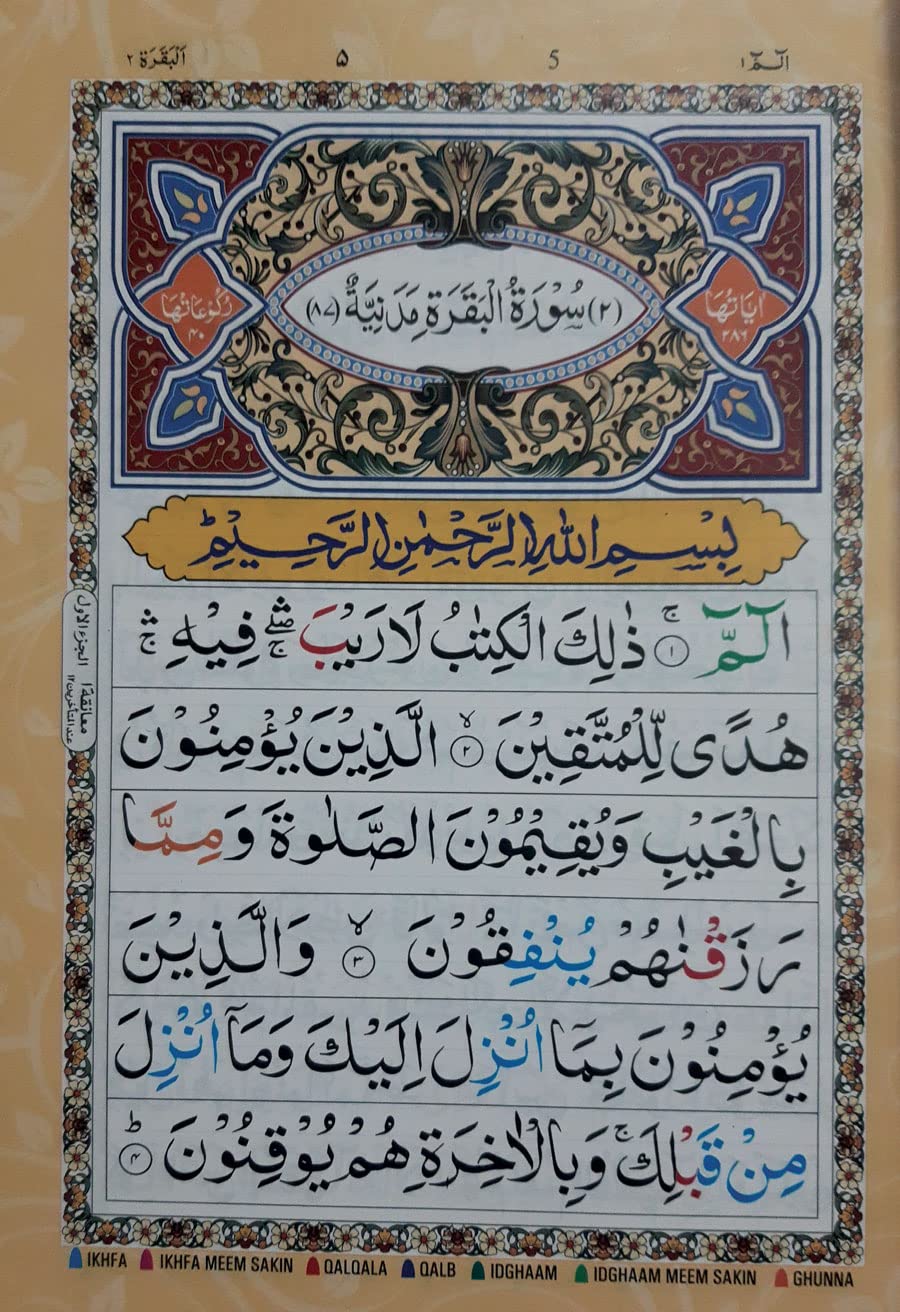 الٓـمّٓ ١ 5 ۵ اَلْبَقَرَة ٢
اٰيَاتُهَا ٢٨٦
(٢) سُوْرَةُ الْبَقَرَةِ مَدَنِيَّةٌ (٨٧)
رُكُوْعَاتُهَا ٤٠
بِسْمِ اللّٰهِ الرَّحْمٰنِ الرَّحِيْمِ ؕ
الٓمّٓ ۚ ١ ذٰلِكَ الْكِتٰبُ لَا رَيْبَ ۛۖۚ فِيْهِ ۛۚ
هُدًى لِّلْمُتَّقِيْنَ ۙ ٢ الَّذِيْنَ يُؤْمِنُوْنَ
بِالْغَيْبِ وَيُقِيْمُوْنَ الصَّلٰوةَ وَمِمَّا
رَزَقْنٰهُمْ يُنْفِقُوْنَ ۙ ٣ وَالَّذِيْنَ
يُؤْمِنُوْنَ بِمَاۤ اُنْزِلَ اِلَيْكَ وَمَاۤ اُنْزِلَ
مِنْ قَبْلِكَ ۚ وَبِالْاٰخِرَةِ هُمْ يُوْقِنُوْنَ ؕ ٤
الجزء الاول
معانقة ١
عند المتأخرين ١٢
IKHFA IKHFA MEEM SAKIN QALQALA QALB IDGHAAM IDGHAAM MEEM SAKIN GHUNNA